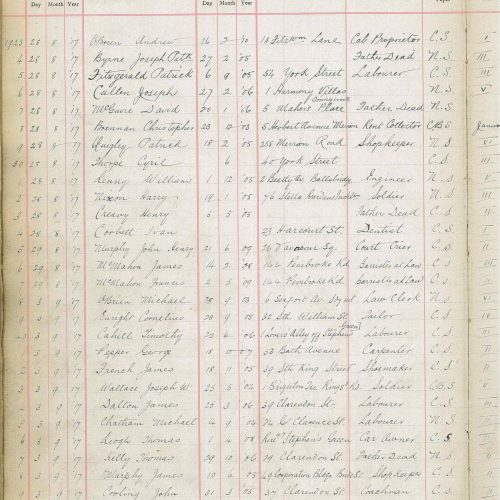 Day Month Year Day Month Year
1923 28 8 '17 O'Brien Andrew 26 2 10 18 Fitzwm Lane Cab Proprietor C.S. I
4 28 8 '17 Byrne Joseph Patk 27 2 05 Father Dead N.S. III
5 28 8 '17 Fitzgerald Patrick 6 9 05 54 York Street Labourer C.S. III
6 28 8 '17 Cullen Joseph 27 2 06 1 Harmony Villas N.S. V
7 28 8 '17 McGuire David 20 1 16 5 Place Father Dead N.S.
8 28 8 '17 Brennan Christopher 23 12 03 5 Herbert Avenue Merrion Rent Collector CBS Junior
9 28 8 '17 Quigley Patrick 18 2 05 25 Merrion Road Shopkeeper N.S. VI
30 28 8 '17 Thorpe Cyril 6 40 York Street C.S. III
28 8 '17 Kenny William 1 12 05 2 Ballsbridge Engineer N.S.
2 28 8 '17 Nixon Harry 19 1 08 76 Stella Gardens Soldier N.S.
3 28 8 '17 Creavy Henry 5 5 05 Father Dead C.S.
4 28 8 '17 Corbett Ivan 23 Harcourt St. Dentist C.S.
5 28 8 '17 Murphy John Henry 21 6 09 26 Sq. Court Crier C.S. II
6 29 8 '17 McMahon James 14 2 '08 164 Pembroke Rd Barrister at Law C.S.
7 29 8 '17 McMahon Francis 2 5 09 164 Pembroke Rd Barrister at Law C.S.
8 3 9 '17 O'Brien Michael 28 9 13 6 Seafort Av. Law Clerk N.S. VI
9 3 9 '17 Enright Cornelius 29 9 05 32 Sth William St. Tailor C.S.
3 9 '17 Cahill Timothy 22 6 06 1 Lovers Alley off Stephens Green Labourer C.S. III
3 9 '17 Pepper George 18 10 07 53 Bath Avenue Carpenter C.S.
2 3 9 '17 French James 18 11 05 39 Sth King Street Shoemaker C.S.
3 3 9 '17 Wallace Joseph W. 23 5 06 1 Brighton Tce Soldier C.B.S.
3 9 '17 Dalton James 25 3 06 39 Clarendon St. Labourer C.S.
3 9 '17 Chatham Michael 4 9 04 24 Clarence St. Labourer N.S.
6 3 9 '17 Keogh Thomas 1 4 08 Stephens Green Car Owner C.S.
7 3 9 '17 Kelly Thomas 29 10 06 29 Clarendon St. Father Dead N.S.
3 9 '17 Murphy James 10 6 05 Corporation Bldgs Shopkeeper C.S.
9 3 9 '17 Cooling John 31 5 Clarendon St. Coachman C.S.